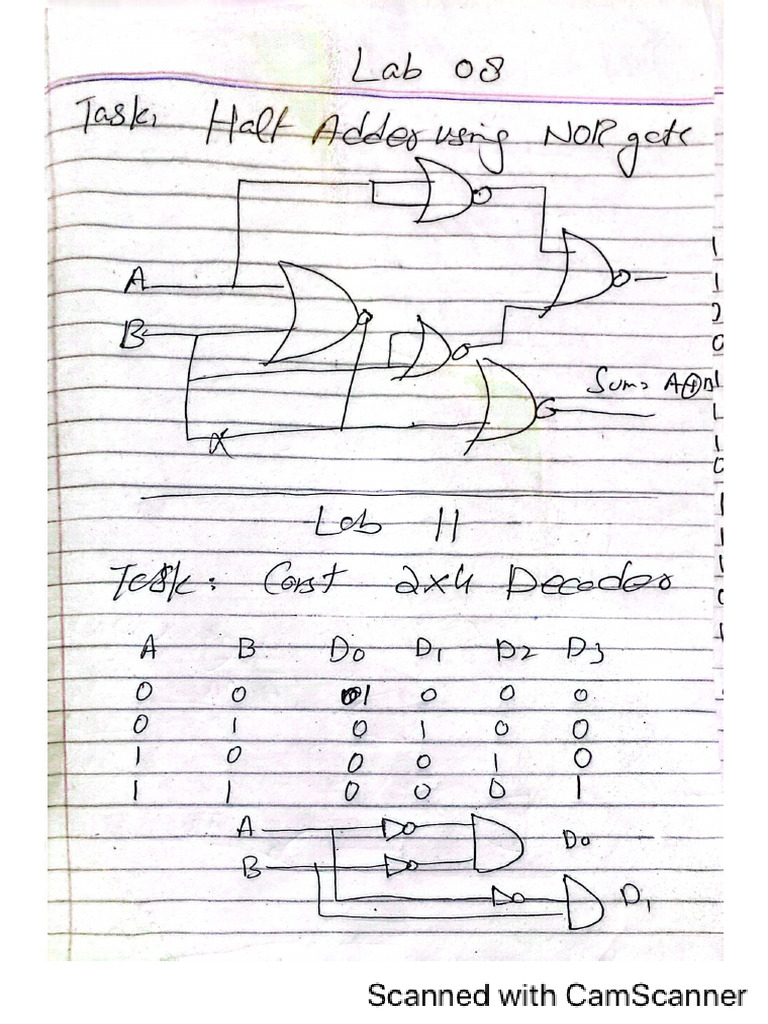 Lab 08
Task, Half Adder using NOR gate
A
B
Sum= A⊕B
Lab 11
Task: Const 2x4 Decoder
A B D0 D1 D2 D3
0 0 1 0 0 0
0 1 0 1 0 0
1 0 0 0 1 0
1 1 0 0 0 1
A
D0
B
D1
Scanned with CamScanner